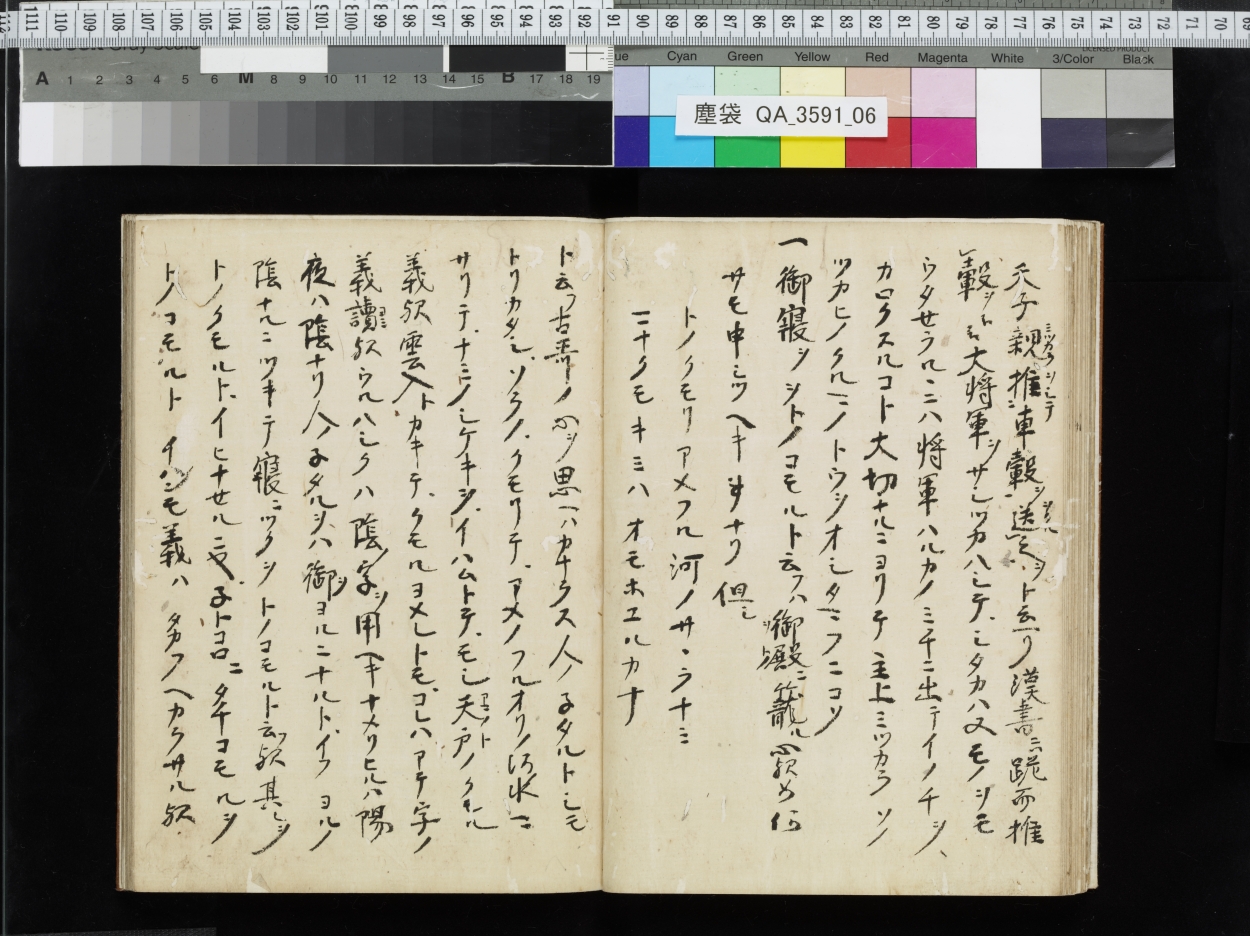 天子親推車轂送之ト云ヘリ漢書ニハ跪而推
轂ト云大将軍ヲサシツカハシテシタカハヌモノヲモ
ウタせラルニハ将軍ハルカノミチニ出テイノチヲ
カロクスルコト大切ナルニヨリテ主上ミツカラソノ
ツカヒノクルマノトウヲオシタマフニコソ
一 御寝シトノコモルト云フハ御殿ニ籠ル心歟如何
サモ申シツヘキ事ナリ但シ
トノクモリアメフル河ノサヽラナミ
マナクモキミハオモホエルカナ
ト云フ古哥ノ心ヲ思ヘハカナラス人ノ子タルトシモ
トリカタシソラノクモリテアメノフルオリノ河水マ
サリテナミノシケキヲイハムトテモシ天戸ノクモル
義歟雲入トカキテクモルヨメレトモコレハアテ字ノ
義讀歟ウルハシクハ陰ノ字ヲ用ヘキナメリヒルハ陽
夜ハ陰ナリ人ノ子タルヲハ御ヨルニナルトイフヨルノ
陰ナルニツキテ寝ニツクヲトノコモルト云フ歟其レヲ
トノクモルトイヒナせルニヤ子トコロニタチコモルヲ
トノコモルトイハンモ義ハタカフヘカラサル歟
塵袋 QA_3591_06
Cyan Green Yellow Red Magenta White 3/Color Black
A 1 2 3 4 5 6 M 8 9 10 11 12 13 14 15 B 17 18 19